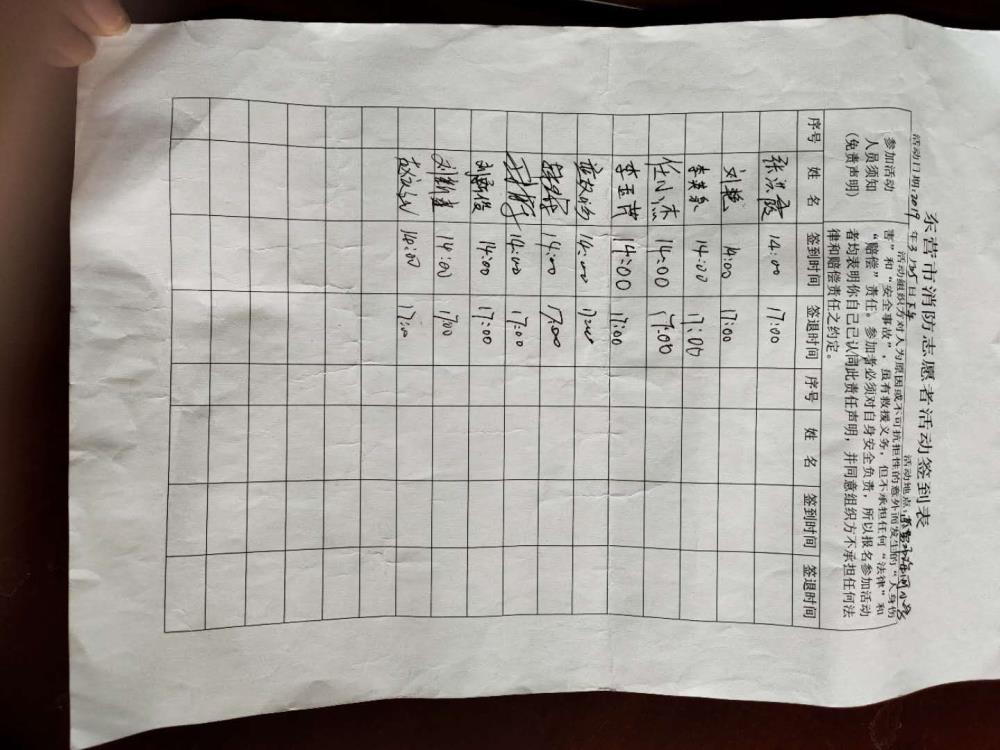 东营市消防志愿者活动签到表
活动日期:2019年3月 日 活动地点:
参加活动人员须知(免责声明)
活动组织方对人为原因或不可抗拒性的意外而发生的“人身伤
害”和“安全事故”，虽有救援义务，但不承担任何“法律”和
“赔偿”责任。参加者必须对自身安全负责，所以报名参加活动
者均表明你自己已认同此责任声明，并同意组织方不承担任何法
律和赔偿责任之约定。
序号 姓名 签到时间 签退时间 序号 姓名 签到时间 签退时间
张洪霞 14:00 17:00
刘艳 14:00 17:00
李英泉 14:00 17:00
任小杰 14:00 17:00
李玉芹 14:00 17:00
14:00 17:00
14:00 17:00
14:00 17:00
14:00 17:00
刘新建 14:00 17:00
14:00 17:00